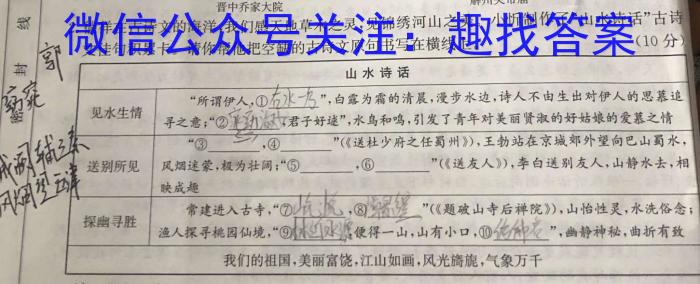 晋中乔家大院
线
封
微信公众号关注：趣找答案
(10分)
山水诗话
见水生情
“所谓伊人，①在水一方”，白露为霜的清晨，漫步水边，诗人不由生出对伊人的思慕追
寻之意；“②，君子好逑”，水鸟和鸣，引发了青年对美丽贤淑的好姑娘的爱慕之情
送别所见
“③，④”(《送杜少府之任蜀州》)，王勃站在京城郊外望向巴山蜀水，
风烟迷蒙，极为壮阔；“⑤，⑥”(《送友人》)，李白送别友人，山静水去，相
映成趣
探幽寻胜
常建进入古寺，“⑦，⑧”(《题破山寺后禅院》)，山怡性灵，水洗俗念；
渔人探寻桃园仙境，“⑨林尽水源便得一山，山有小口，⑩”，幽静神秘，曲折有致
我们的祖国，美丽富饶，江山如画，风光旖旎，气象万千
郭
窈窕
城阙辅三秦
风烟望五津